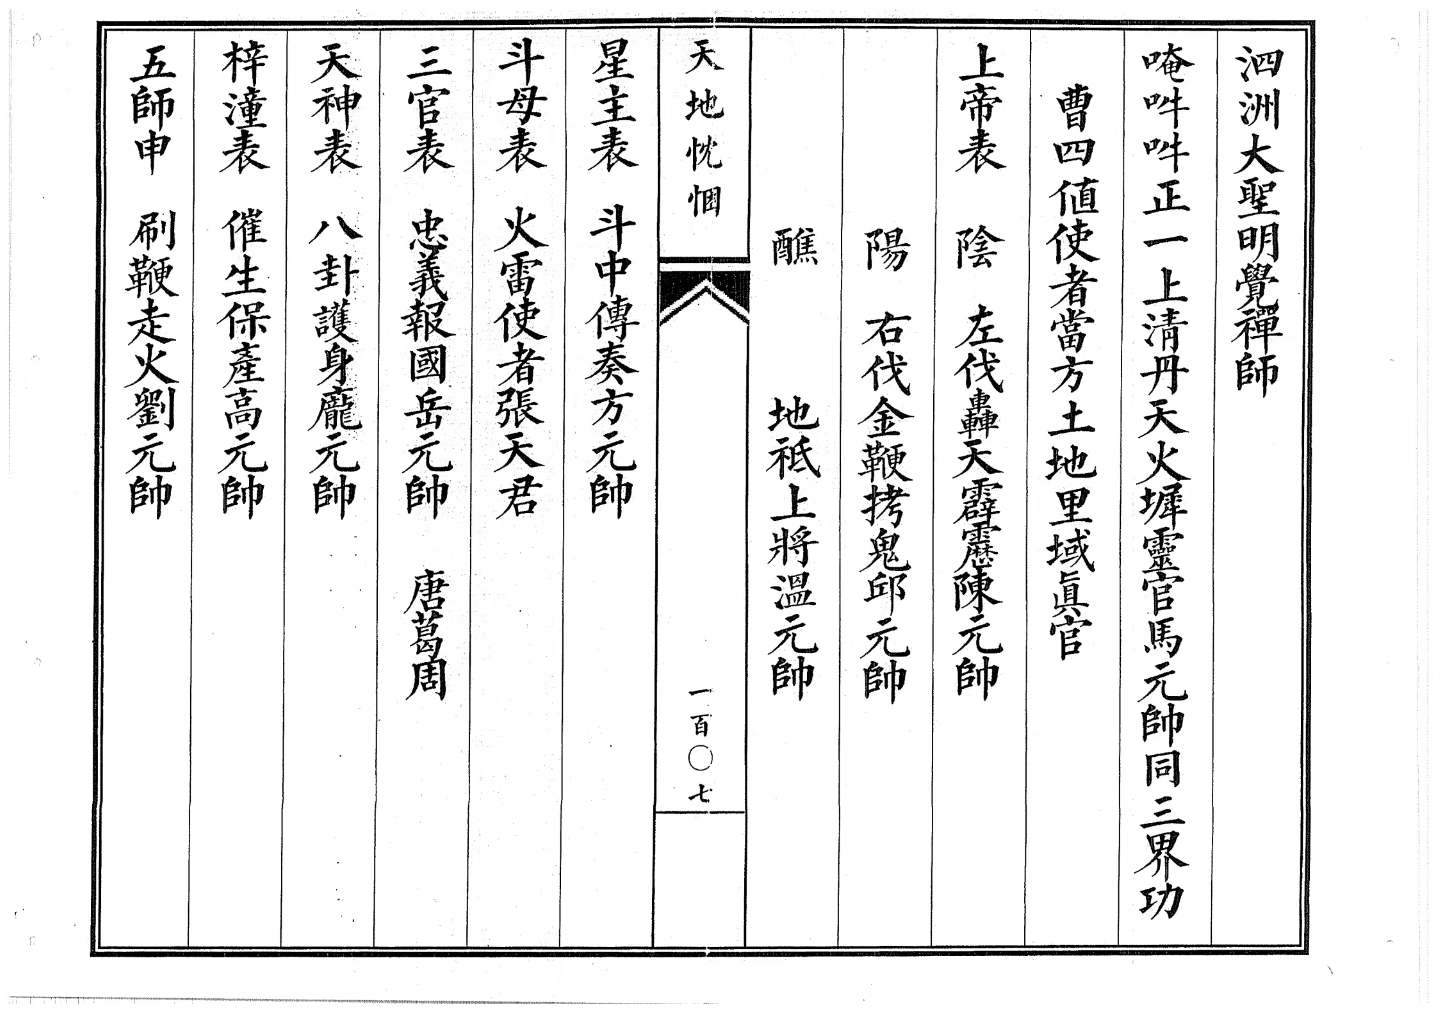 泗洲大聖明覺禪師
唵吽吽正一上清丹天火墀靈官馬元帥同三界功
曹四値使者當方土地里域眞官
上帝表 陰 左伐轟天霹靂陳元帥
陽 右伐金鞭拷鬼邱元帥
醮 地祇上將溫元帥
天地忱悃
一百〇七
星主表 斗中傳奏方元帥
斗母表 火雷使者張天君
三官表 忠義報國岳元帥 唐葛周
天神表 八卦護身龐元帥
梓潼表 催生保產高元帥
五師申 刷鞭走火劉元帥